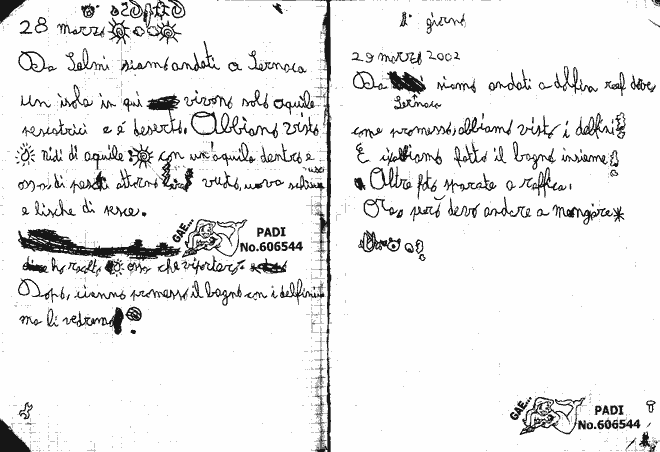 28 marzo
Da Selmi siamo andati a Sernaca
un isola in qui vivono solo aquile
pescatrici e é deserto. Abbiamo visto
nidi di aquile con un'aquila dentro e
ossa di pesci attorno uova
e lische di pesce.
GAE...
PADI
No.606544
ho raccolto osso che riporterò
Dopo, ci anno promesso il bagno con i delfini
ma li vedremo
1° giorno
29 marzo 2002
Da siamo andati a dolfin reef dove,
Sernaca
come promesso, abbiamo visto i delfini
E abbiamo fatto il bagno insieme
Altre foto sparate a raffica.
Ora però devo andare a mangiare
GAE...
PADI
No.606544